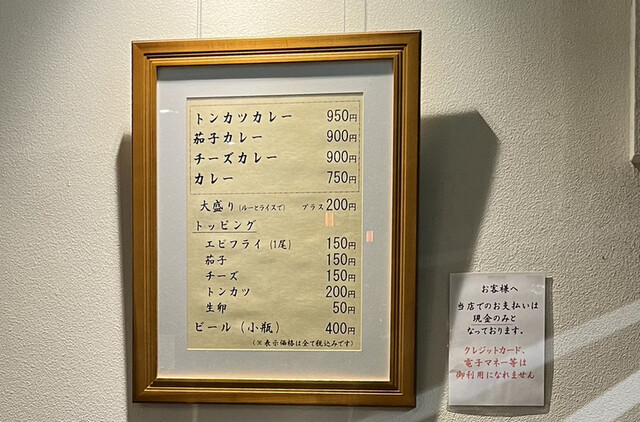 トンカツカレー 950円
茄子カレー 900円
チーズカレー 900円
カレー 750円
大盛り(ルーとライスで) プラス200円
トッピング
エビフライ(1尾) 150円
茄子 150円
チーズ 150円
トンカツ 200円
生卵 50円
ビール(小瓶) 400円
(※表示価格は全て税込みです)
お客様へ
当店でのお支払いは
現金のみと
なっております。
クレジットカード、
電子マネー等は
御利用になれません